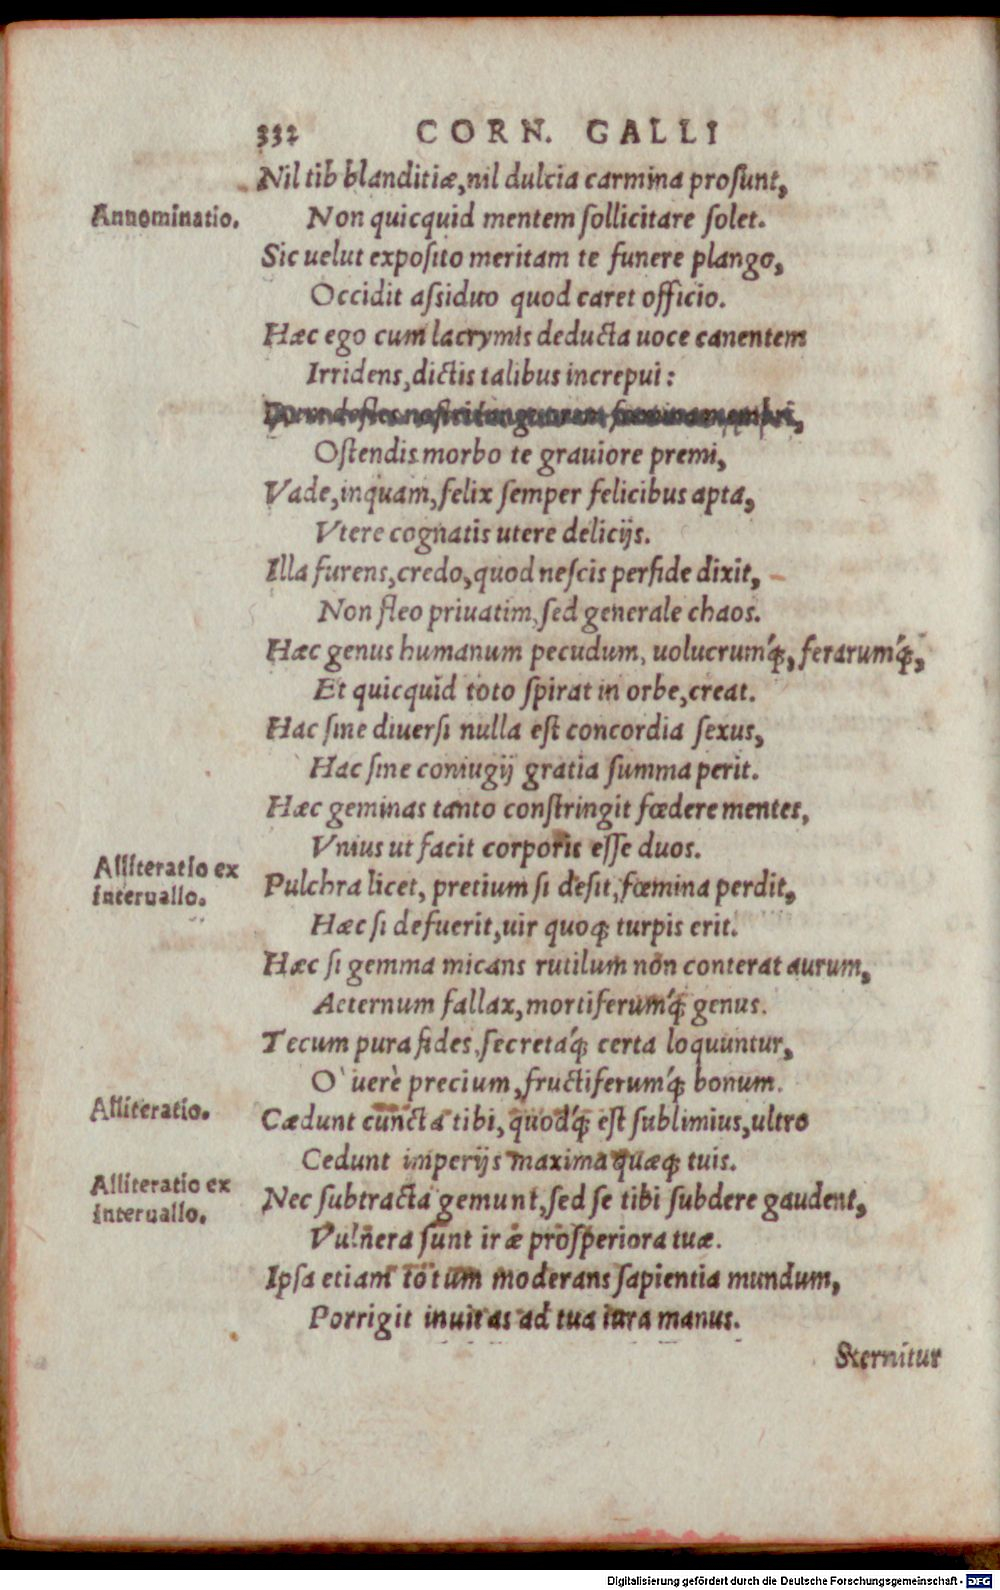 332 CORN. GALLI
Nil tib blanditiæ, nil dulcia carmina proſunt,
Annominatio.
Non quicquid mentem ſollicitare ſolet.
Sic uelut expoſito meritam te funere plango,
Occidit aſsiduo quod caret officio.
Hæc ego cum lacrymis deducta uoce canentem
Irridens, dictis talibus increpui:
Oſtendis morbo te grauiore premi,
Vade, inquam, felix ſemper felicibus apta,
Vtere cognatis utere delicijs.
Illa furens, credo, quod neſcis perfide dixit,
Non fleo priuatim, ſed generale chaos.
Hæc genus humanum pecudum, uolucrumq́;, ferarumq́;,
Et quicquid toto ſpirat in orbe, creat.
Hac ſine diuerſi nulla eſt concordia ſexus,
Hac ſine coniugij gratia ſumma perit.
Hæc geminas tanto conſtringit fœdere mentes,
Vnius ut facit corporis eſſe duos.
Alliteratio ex
interuallo.
Pulchra licet, pretium ſi deſit, fœmina perdit,
Hæc ſi defuerit, uir quoq; turpis erit.
Hæc ſi gemma micans rutilum non conterat aurum,
Aeternum fallax, mortiferumq́; genus.
Tecum pura fides, ſecretaq́; certa loquuntur,
O` uerè precium, fructiferumq́; bonum.
Alliteratio.
Cædunt cuncta tibi, quodq́; eſt ſublimius, ultro
Cedunt imperijs maxima quæq; tuis.
Alliteratio ex
interuallo.
Nec ſubtracta gemunt, ſed ſe tibi ſubdere gaudent,
Vulnera ſunt iræ proſperiora tuæ.
Ipſa etiam totum moderans ſapientia mundum,
Porrigit inuitas ad tua iura manus.
Sternitur
Digitalisierung gefördert durch die Deutsche Forschungsgemeinschaft - DFG